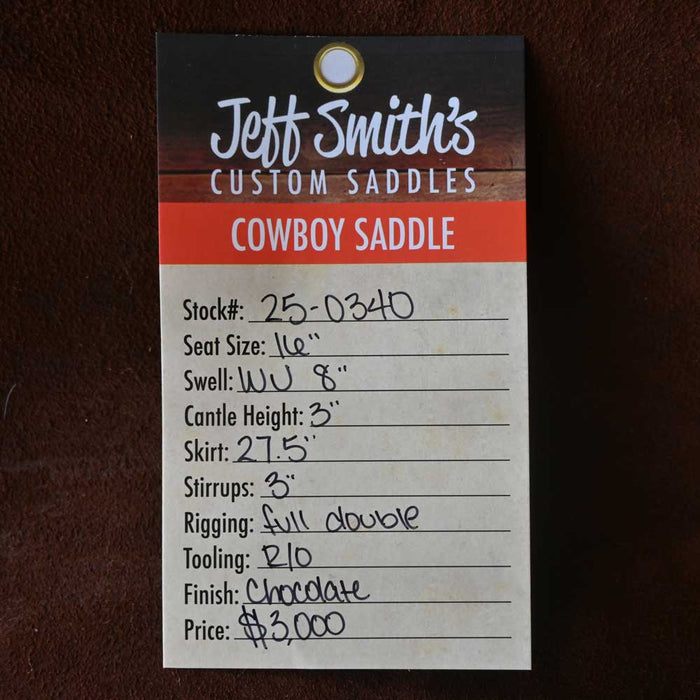 Jeff Smith's
CUSTOM SADDLES
COWBOY SADDLE
Stock#: 25-0340
Seat Size: 16"
Swell: WU 8"
Cantle Height: 3"
Skirt: 27.5"
Stirrups: 3"
Rigging: full double
Tooling: R/O
Finish: Chocolate
Price: $3,000